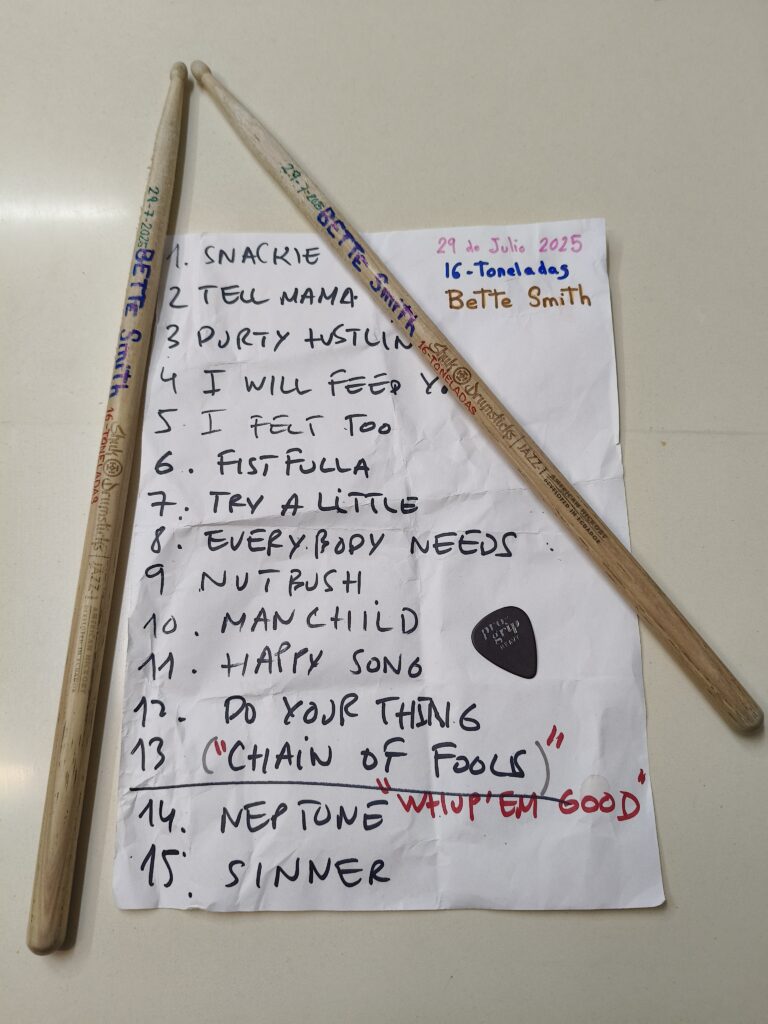 29 de Julio 2025
16-Toneladas
Bette Smith
1. SNACKIE
2 TELL MAMA
3 DURTY HUSTLIN
4 I WILL FEED Y
5 I FELT TOO
6. FISTFULLA
7. TRY A LiTTLE
8. EVERYBODY NEEDS
9 NUTBUSH
10. MANCHILD
11. HAPPY SONG
12. DO YOUR THING
13 ("CHAIN OF FOOLS)"
"WHUP'EM GOOD"
14. NEPTUNE
15. SINNER
29-7-2025 BETTE Smith
16-TONELADAS
Shuk Drumsticks | JAZZ-1
AMERICAN HICKORY
DEVELOPED IN ECUADOR
29-7-2025 BETTE Smith
16-TONELADAS
Shuk Drumsticks | JAZZ-1
AMERICAN HICKORY
DEVELOPED IN ECUADOR
pro-grip
HEAVY